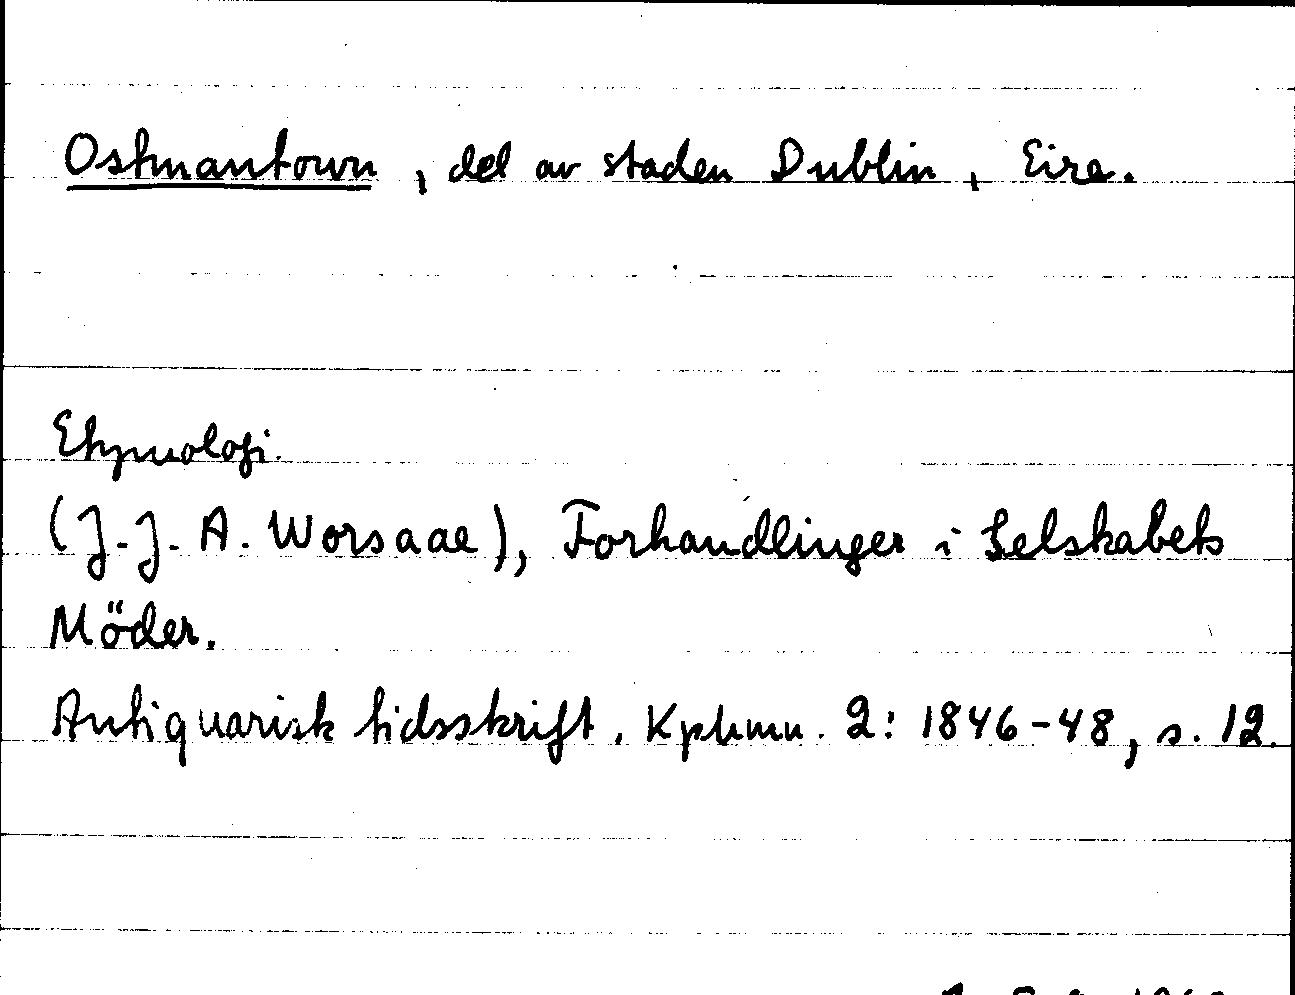 Ostmantown, del av staden Dublin, Eire.
Etymologi.
(J.J.A. Worsaae), Forhandlinger i Selskabets
Möder.
Antiquarisk tidsskrift. Kphmn. 2: 1846-48, s. 12.